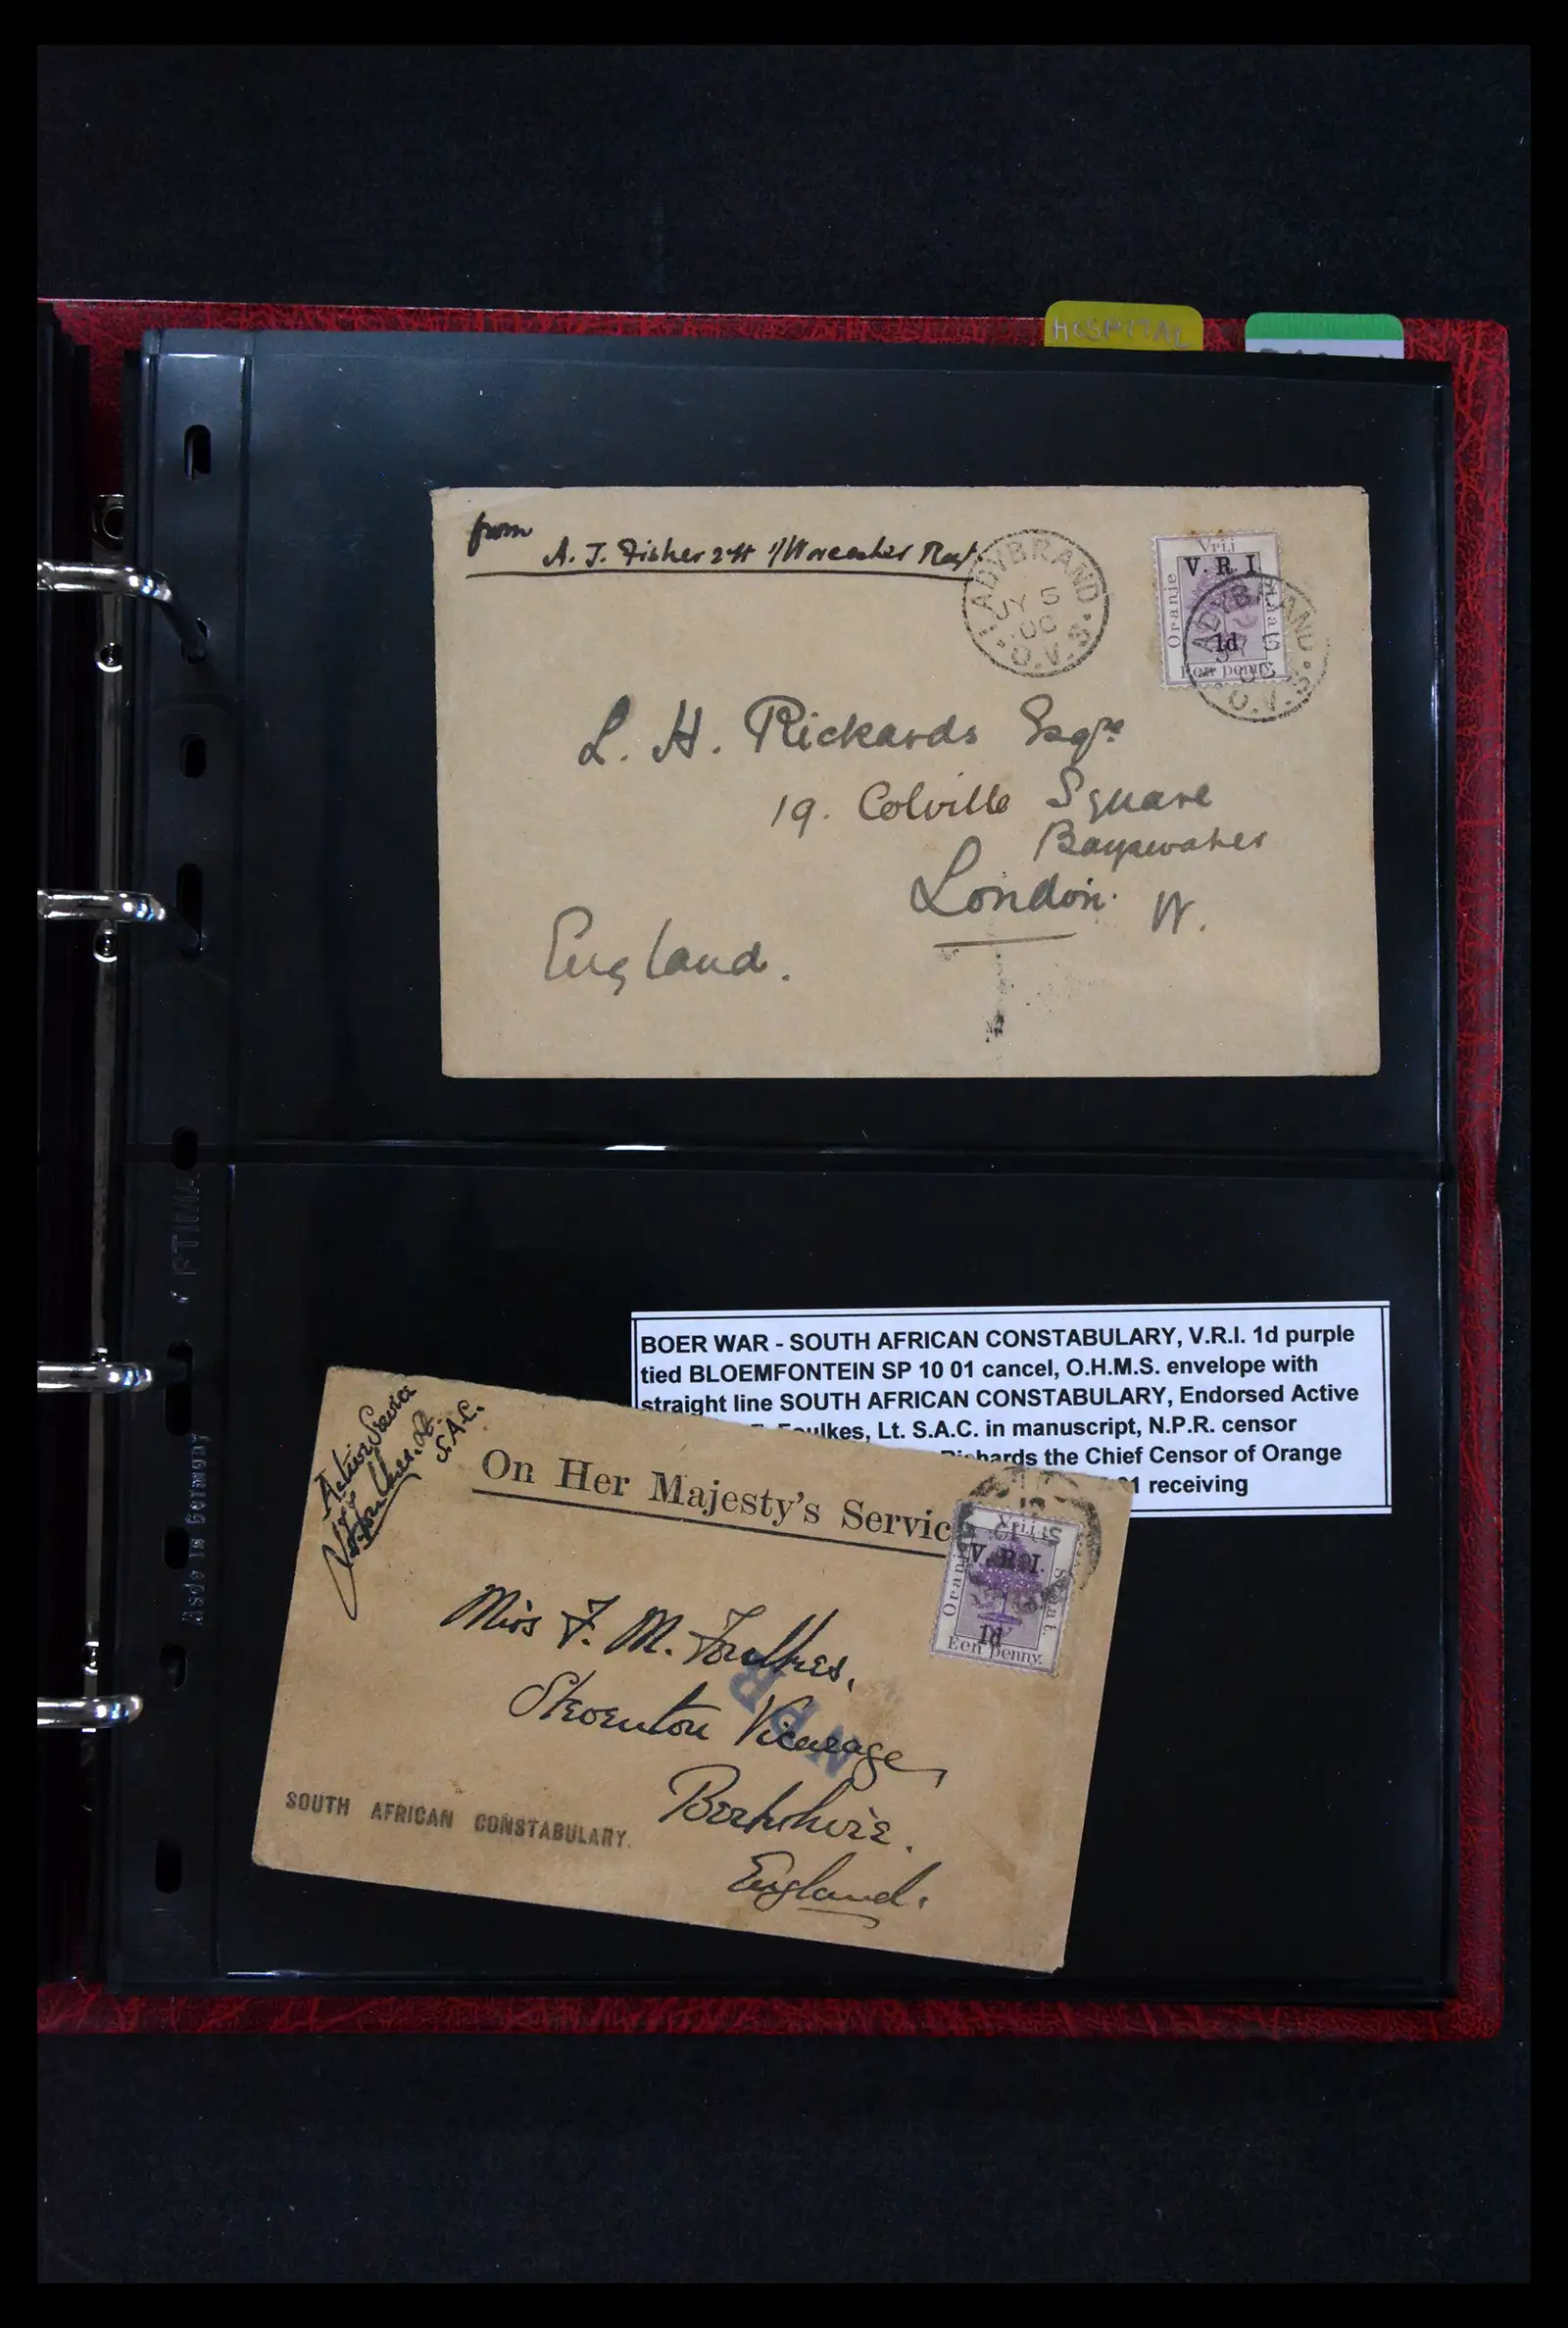 HOSPITAL
from
A. J. Fisher 2 Lt 1/Worcester Regt.
LADYBRAND
JY 5
00
O.V.S.
Vrij
Oranje
V. R. I.
1d
Een penny
LADYBRAND
JY 5
00
O.V.S.
L. H. Rickards Esqre
19. Colville Square
Bayswater
London. W.
England.
BOER WAR - SOUTH AFRICAN CONSTABULARY, V.R.I. 1d purple
tied BLOEMFONTEIN SP 10 01 cancel, O.H.M.S. envelope with
straight line SOUTH AFRICAN CONSTABULARY, Endorsed Active
Foulkes, Lt. S.A.C. in manuscript, N.P.R. censor
the Chief Censor of Orange
01 receiving
Active Service
Foulkes. Lt.
S.A.C.
On Her Majesty's Servic
Vrij
Oranje
Staat.
V. R. I.
1d
Een penny.
Miss F. M. Foulkes,
Steventon Vicarage,
Berkshire.
England.
N P R
SOUTH AFRICAN CONSTABULARY.
Made in Germany